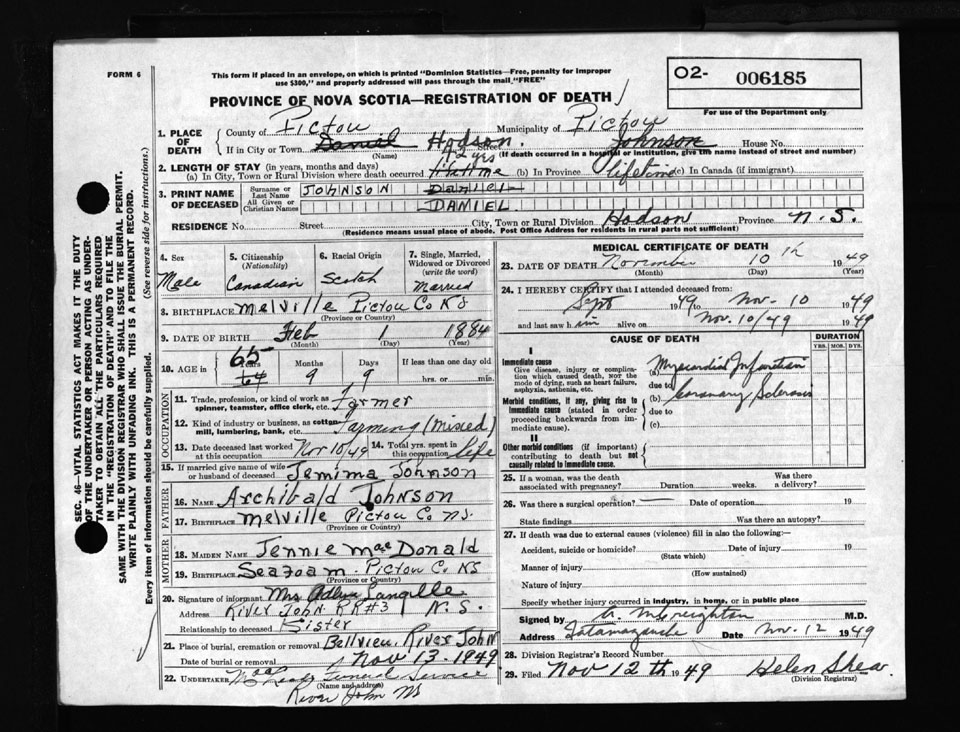 FORM 6
This form if placed in an envelope, on which is printed "Dominion Statistics—Free, penalty for improper
use $300," and properly addressed will pass through the mail, "FREE"
O2- 006185
For use of the Department only
PROVINCE OF NOVA SCOTIA—REGISTRATION OF DEATH
1. PLACE OF DEATH
County of Pictou Municipality of Pictou
If in City or Town Daniel Hodson. Street Johnson House No.
(Name) (If death occurred in a hospital or institution, give the name instead of street and number)
2. LENGTH OF STAY (in years, months and days)
(a) In City, Town or Rural Division where death occurred 12 yrs (b) In Province lifetime (c) In Canada (if immigrant)
3. PRINT NAME OF DECEASED
Surname or Last Name JOHNSON DANIEL
All Given or Christian Names DANIEL
RESIDENCE No. Street City, Town or Rural Division Hodson Province N.S.
(Residence means usual place of abode. Post Office Address for residents in rural parts not sufficient)
SEC. 46—VITAL STATISTICS ACT MAKES IT THE DUTY
OF THE UNDERTAKER OR PERSON ACTING AS UNDER-
TAKER TO OBTAIN ALL THE PARTICULARS REQUIRED
IN THE "REGISTRATION OF DEATH" AND TO FILE THE
SAME WITH THE DIVISION REGISTRAR WHO SHALL ISSUE THE BURIAL PERMIT.
WRITE PLAINLY WITH UNFADING INK. THIS IS A PERMANENT RECORD.
Every item of information should be carefully supplied. (See reverse side for instructions.)
4. Sex 5. Citizenship (Nationality) 6. Racial Origin 7. Single, Married, Widowed or Divorced (write the word)
Male Canadian Scotch Married
8. BIRTHPLACE Melville Pictou Co NS
(Province or Country)
9. DATE OF BIRTH Feb 1 1884
(Month) (Day) (Year)
10. AGE in 65 64 Years Months 9 Days 9 If less than one day old
hrs. or min.
OCCUPATION
11. Trade, profession, or kind of work as
spinner, teamster, office clerk, etc. Farmer
12. Kind of industry or business, as cotton-
mill, lumbering, bank, etc. Farming (Mixed)
13. Date deceased last worked at this occupation Nov 10/49 14. Total yrs. spent in this occupation life
15. If married give name of wife or husband of deceased Jemima Johnson
FATHER
16. NAME Archibald Johnson
17. BIRTHPLACE Melville Pictou Co NS.
(Province or Country)
MOTHER
18. MAIDEN NAME Jennie MacDonald
19. BIRTHPLACE Seafoam - Pictou C. NS
(Province or Country)
20. Signature of informant Mrs Langille
Address River John RR#3 N.S.
Relationship to deceased Sister
21. Place of burial, cremation or removal Bellview River John
Date of burial or removal Nov 13. 1949
22. UNDERTAKER Funeral Service
(Name and address)
River John NS
MEDICAL CERTIFICATE OF DEATH
23. DATE OF DEATH November 10th 1949
(Month) (Day) (Year)
24. I HEREBY CERTIFY that I attended deceased from:
Sept 1949 to Nov-10 1949
and last saw him alive on Nov. 10/49 1949
CAUSE OF DEATH DURATION
YRS. MOS. DYS.
I
Immediate cause
Give disease, injury or complica-
tion which caused death, not the
mode of dying, such as heart failure,
asphyxia, asthenia, etc.
(a) Myocardial Infarction
due to
Morbid conditions, if any, giving rise to
immediate cause (stated in order
proceeding backwards from im-
mediate cause).
(b) Coronary Sclerosis
due to
(c)
II
Other morbid conditions (if important)
contributing to death but not
causally related to immediate cause.
25. If a woman, was the death associated with pregnancy? Duration weeks. Was there a delivery?
26. Was there a surgical operation? — Date of operation 19
State findings Was there an autopsy?
27. If death was due to external causes (violence) fill in also the following:
Accident, suicide or homicide? Date of injury 19
(State which)
Manner of injury
(How sustained)
Nature of injury
Specify whether injury occurred in industry, in home, or in public place
Signed by M.D.
Address Tatamagouche Date Nov. 12 1949
28. Division Registrar's Record Number
29. Filed Nov 12th 1949 Helen Shea
(Division Registrar)